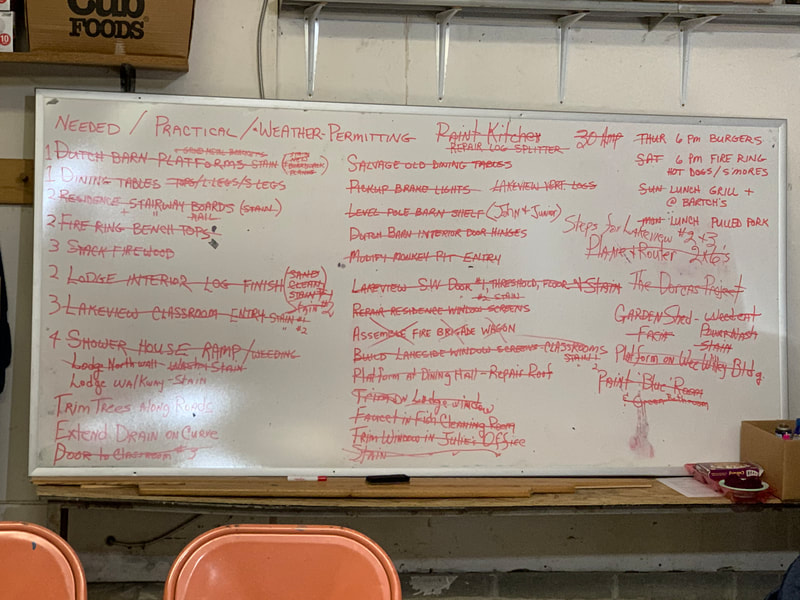 Cub
FOODS
10
NEEDED / PRACTICAL / WEATHER-PERMITTING
1 DUTCH BARN PLATFORMS STAIN
1 DINING TABLES TOPS/L LEGS/S LEGS
2 RESIDENCE STAIRWAY BOARDS (STAIN)
+ " RAIL
2 FIRE RING BENCH TOPS
3 STACK FIREWOOD
2 LODGE INTERIOR LOG FINISH (SAND
CLEAN
STAIN
3 LAKEVIEW CLASSROOM ENTRY STAIN #1
" #2
4 SHOWER HOUSE RAMP/WEEDING
Lodge North wall STAIN
Lodge Walkway-Stain
TRIM TREES ALONG ROADS
EXTEND DRAIN ON CURVE
DOOR to CLASSROOM #
Paint Kitchen
REPAIR LOG SPLITTER
SALVAGE OLD DINING TABLES
PICKUP BRAKE LIGHTS LAKEVIEW LOGS
LEVEL POLE BARN SHELF (JOHN & JUNIOR)
DUTCH BARN INTERIOR DOOR HINGES
MODIFY MONKEY PIT ENTRY
LAKEVIEW S.W. DOOR #1, THRESHOLD, FLOOR N STAIN
" #2 STAIN
REPAIR RESIDENCE WINDOW SCREENS
ASSEMBLE FIRE BRIGADE WAGON
BUILD LAKESIDE WINDOW SCREENS CLASSROOMS
STAIN
PLATFORM AT DINING HALL - REPAIR ROOF
TRIM ON Lodge window
FAUCET IN FISH CLEANING ROOM
TRIM WINDOW IN JULIE'S OFFICE
STAIN
30 AMP
THUR 6 PM BURGERS
SAT 6 PM FIRE RING
HOT DOGS/S'MORES
SUN LUNCH GRILL +
@ BARTCH'S
MON LUNCH PULLED PORK
Steps for Lakeview #2 + 3
Plane + Router 2x6's
The Dorcas Project
GARDEN SHED - WEED EAT
FACIA POWERWASH
STAIN
Platform on Wee Willey Bldg
2 PAINT BLUE ROOM
& GREEN BATHROOM